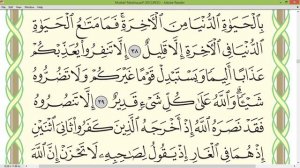 بِالْحَيَوٰةِ الدُّنْيَا مِنَ الْآخِرَةِ فَمَا مَتَاعُ الْحَيَوٰةِ
الدُّنْيَا فِي الْآخِرَةِ إِلَّا قَلِيلٌ ٣٨ إِلَّا تَنفِرُوا يُعَذِّبْكُمْ
عَذَابًا أَلِيمًا وَيَسْتَبْدِلْ قَوْمًا غَيْرَكُمْ وَلَا تَضُرُّوهُ
شَيْئًا وَاللَّهُ عَلَىٰ كُلِّ شَيْءٍ قَدِيرٌ ٣٩ إِلَّا تَنصُرُوهُ
فَقَدْ نَصَرَهُ اللَّهُ إِذْ أَخْرَجَهُ الَّذِينَ كَفَرُوا ثَانِيَ اثْنَيْنِ
إِذْ هُمَا فِي الْغَارِ إِذْ يَقُولُ لِصَاحِبِهِ لَا تَحْزَنْ إِنَّ اللَّهَ